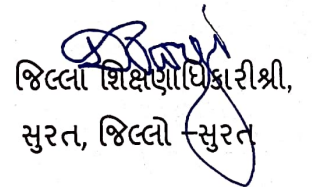 જિલ્લા શિક્ષણાધિકારીશ્રી,
સુરત, જિલ્લો -સુરત